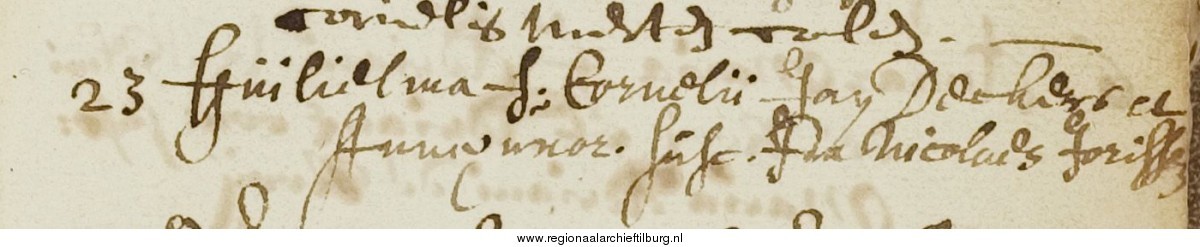 cornelis
23 Guilielma f: Cornelii Jan Deckers et
Annæ uxor. susc. Ida Nicolaes Joriss
www.regionaalarchieftilburg.nl